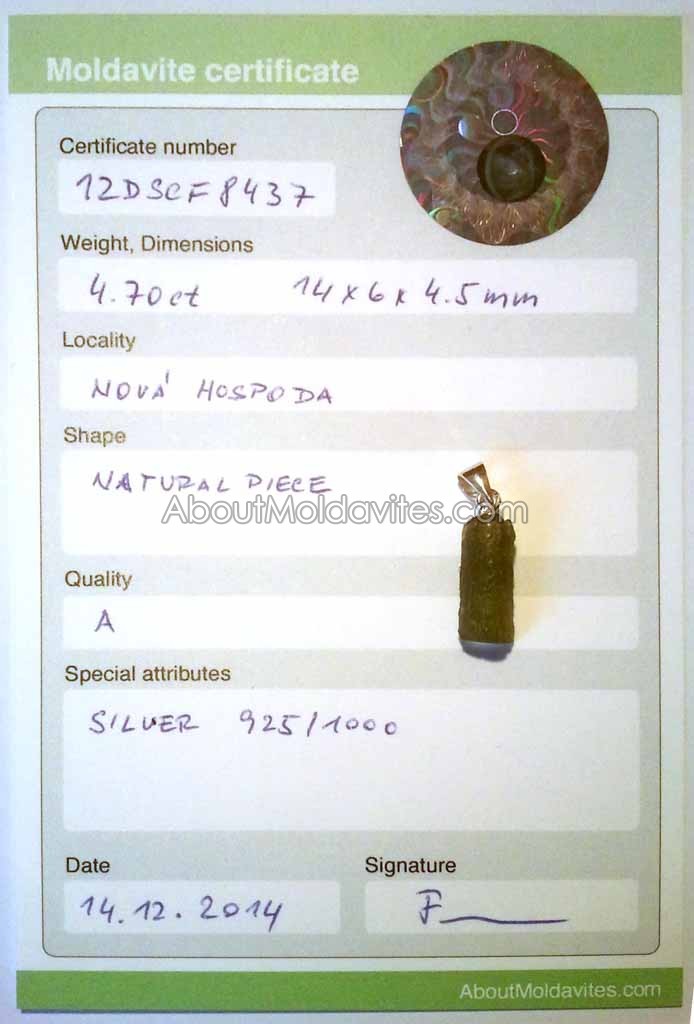 Moldavite certificate
Certificate number
12DSCF8437
Weight, Dimensions
4.70ct 14x6x4.5mm
Locality
NOVÁ HOSPODA
Shape
NATURAL PIECE
AboutMoldavites.com
Quality
A
Special attributes
SILVER 925/1000
Date
Signature
14.12.2014
F
AboutMoldavites.com